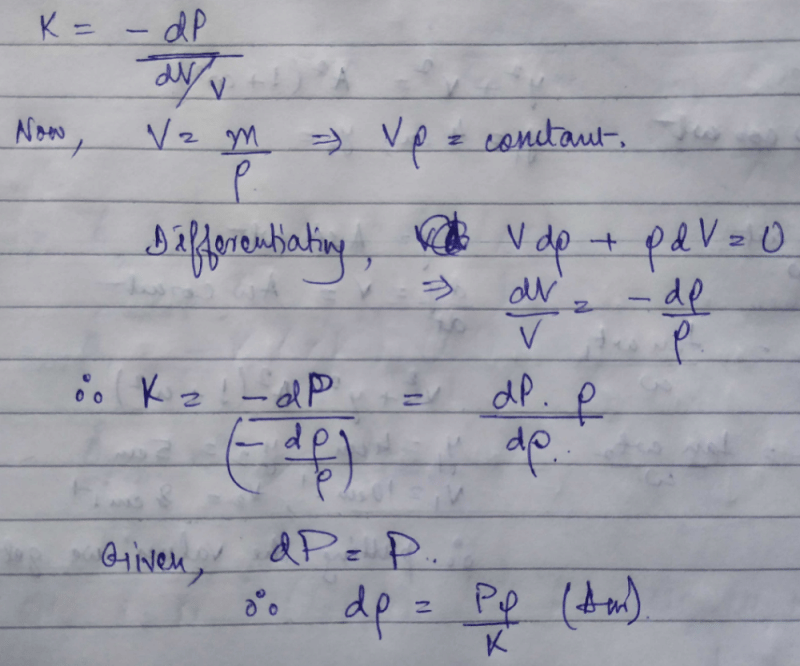 K = - dP / (dV/V)
Now, V = m/ρ ⇒ Vρ = constant.
Differentiating, V dρ + ρ dV = 0
⇒ dV/V = - dρ/ρ
∴ K = -dP / (- dρ/ρ) = dP. ρ / dρ.
Given, dP = P.
∴ dρ = Pρ/K (Ans).